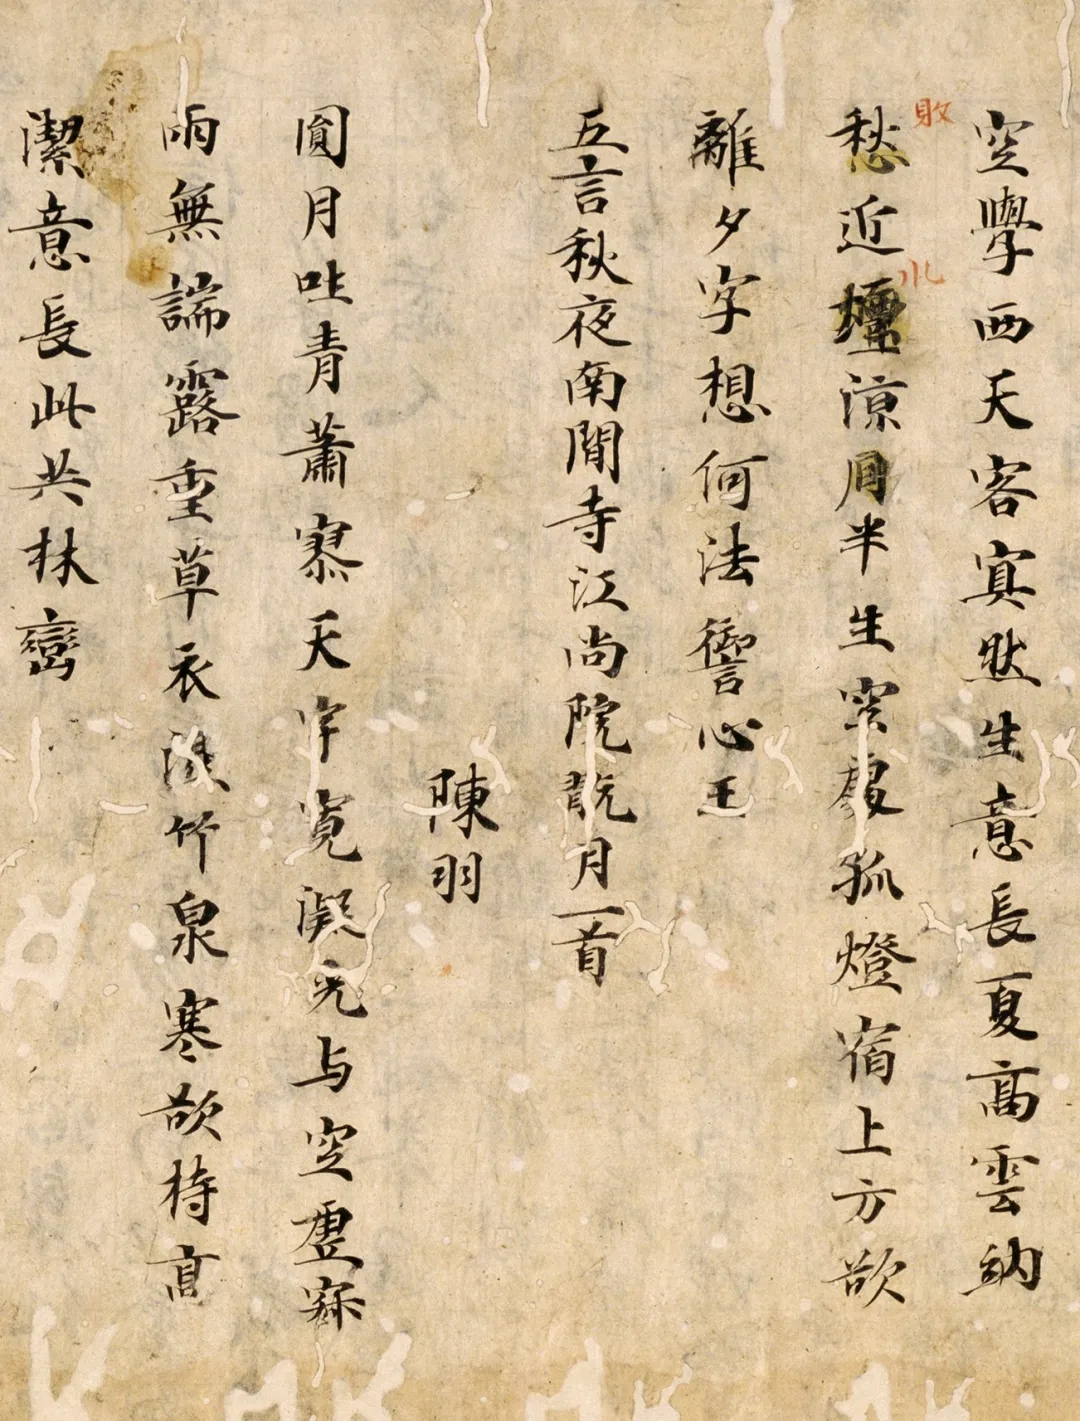 空學西天客㝠然生意長夏高雲納
敗
愁近壇涼同半生空處孤燈宿上方欲
水
離夕字想何法心王
五言秋夜南閒寺江尚院翫月一首
陳羽
圓月吐青蕭寥天宇寬凝光与空虛寂
雨無端露重草衣濕竹泉寒欲持高
潔意長此共林巒